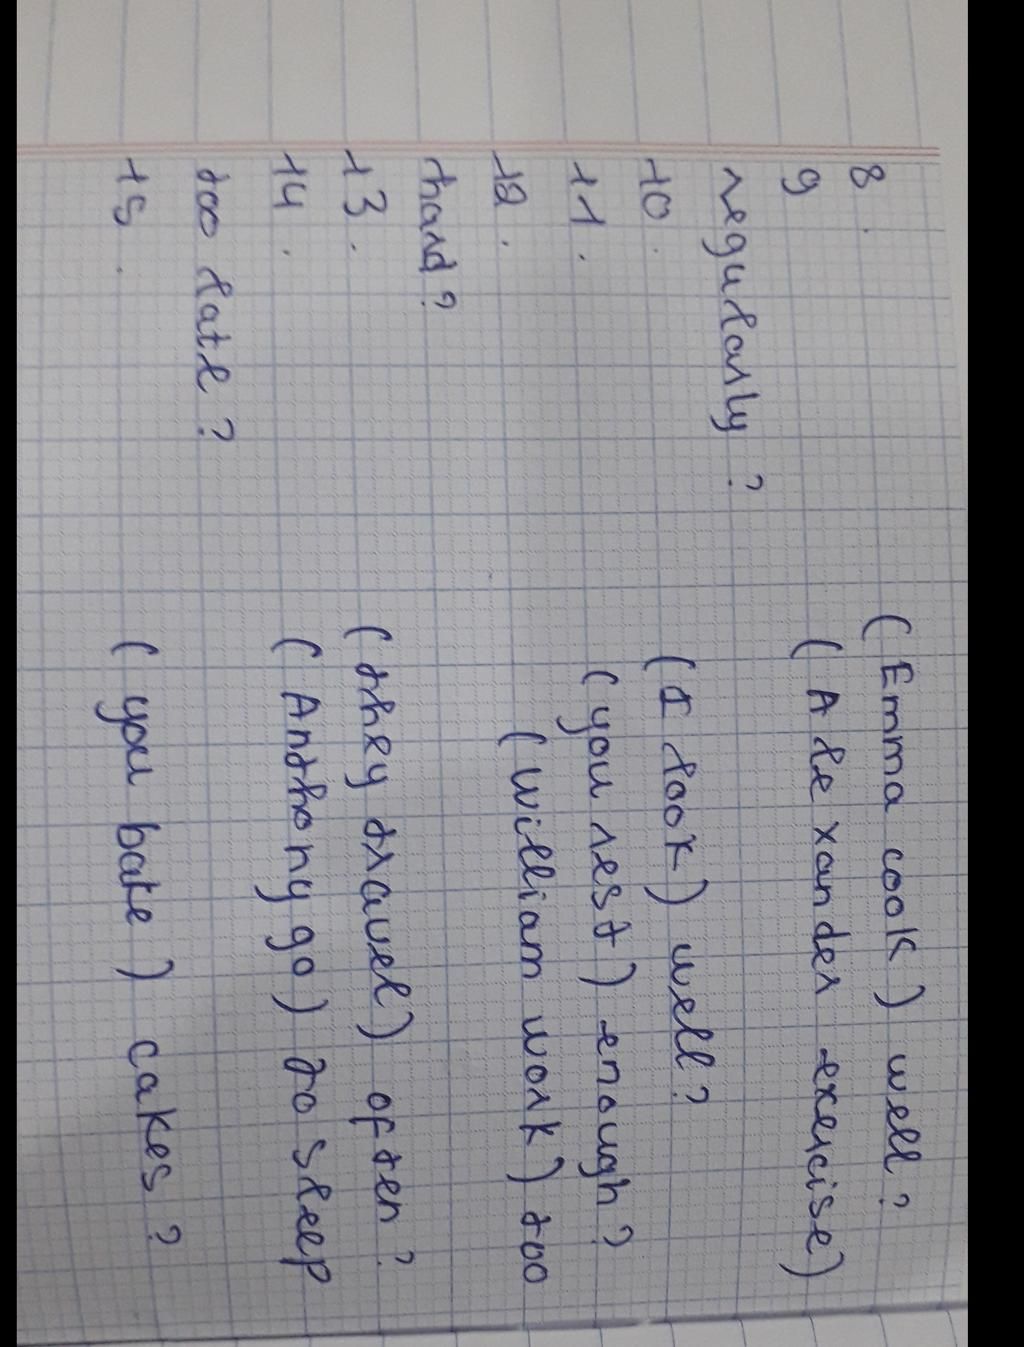 8. (Emma cook) well?
9 (Alexander exercise)
regularly?
10. (I look) well?
11. (you rest) enough?
12. (William work) too
hard?
13. (they travel) often?
14. (Anthony go) to sleep
too late?
15. (you bate) cakes?